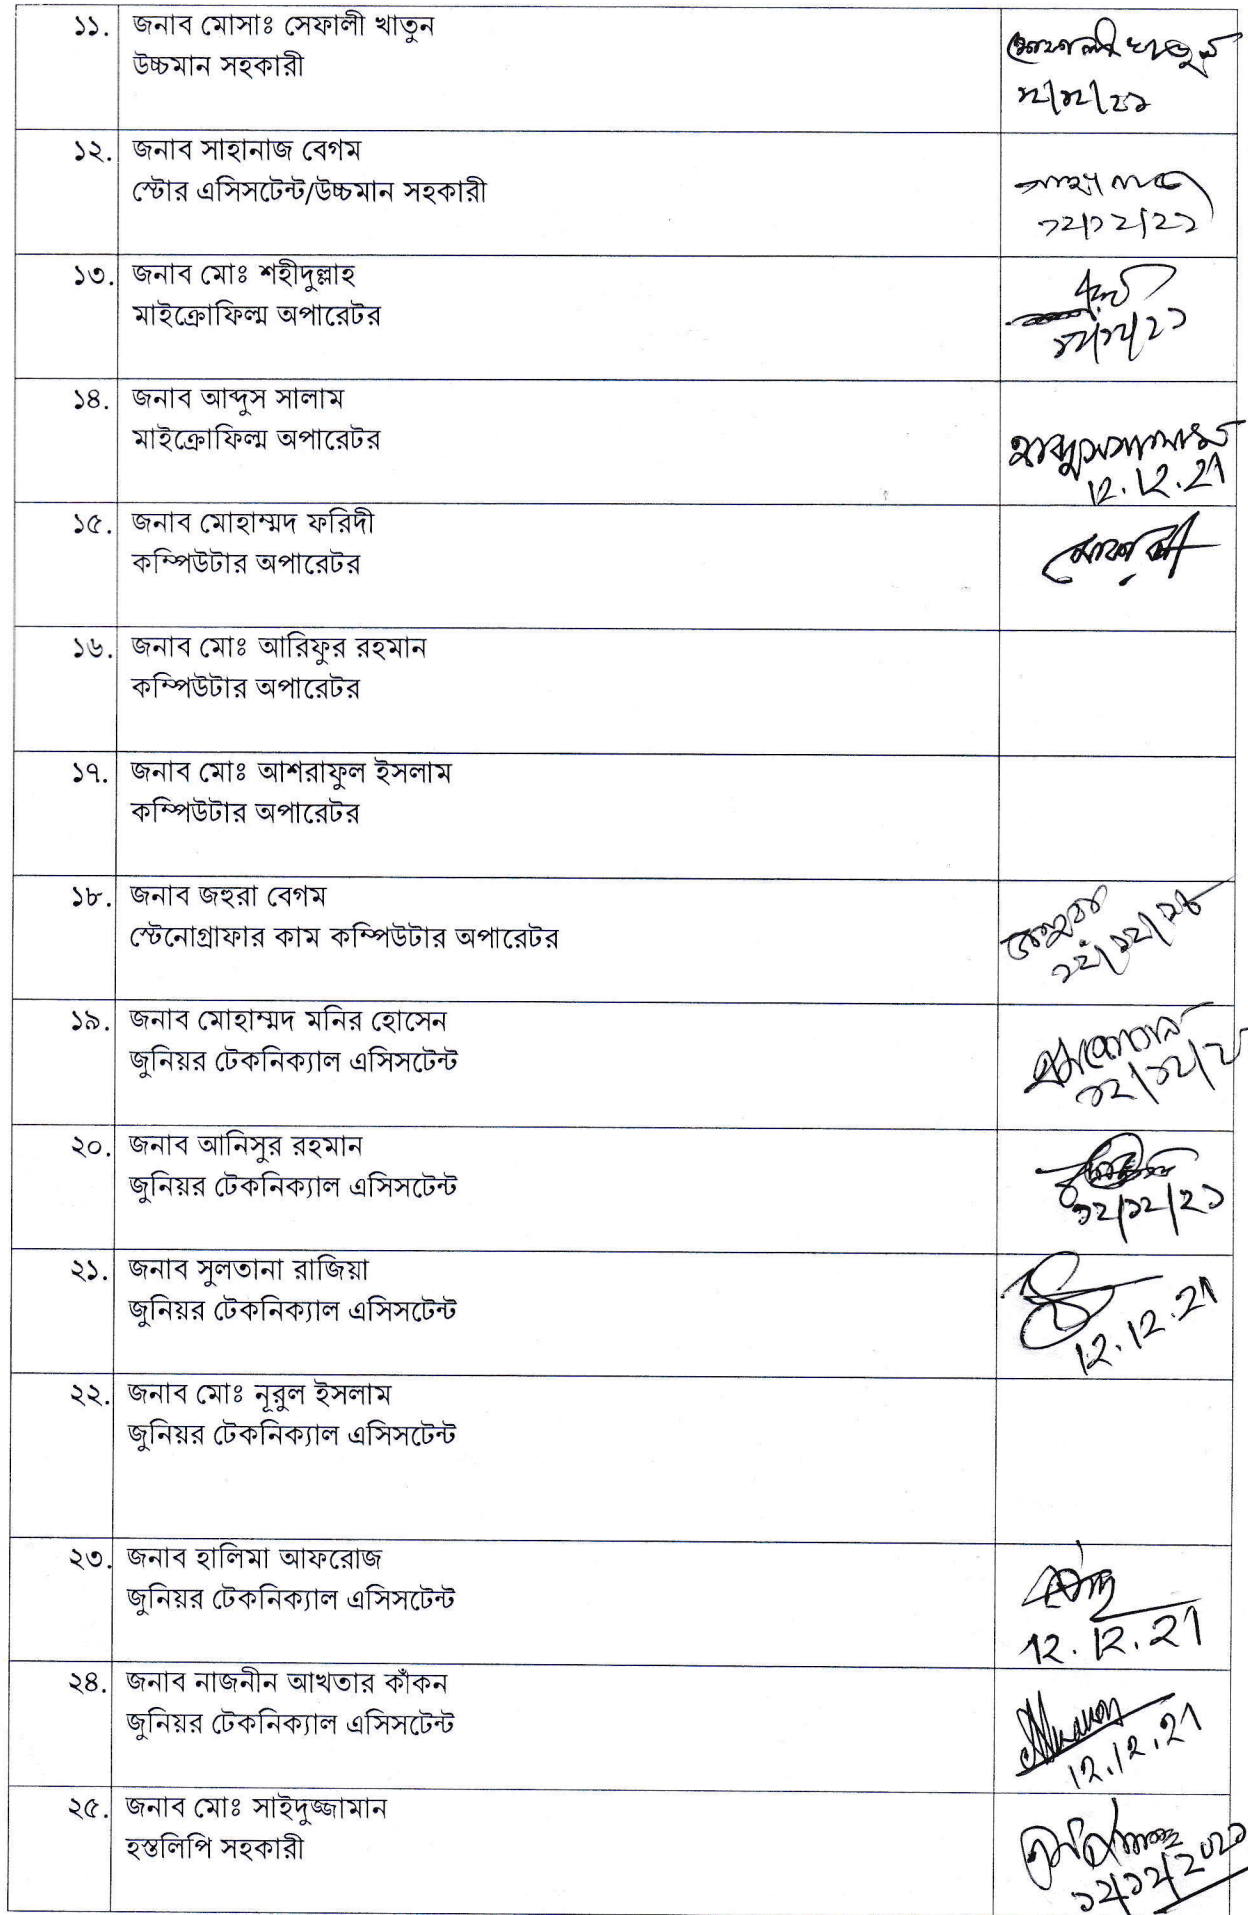 ১১. জনাব মোসাঃ সেফালী খাতুন
উচ্চমান সহকারী
সেফালী খাতুন
১২/১২/২১
১২. জনাব সাহানাজ বেগম
স্টোর এসিসটেন্ট/উচ্চমান সহকারী
সাহানাজ
১২/১২/২১
১৩. জনাব মোঃ শহীদুল্লাহ
মাইক্রোফিল্ম অপারেটর
১২/১২/২১
১৪. জনাব আব্দুস সালাম
মাইক্রোফিল্ম অপারেটর
আব্দুস সালাম
12.12.21
১৫. জনাব মোহাম্মদ ফরিদী
কম্পিউটার অপারেটর
১৬. জনাব মোঃ আরিফুর রহমান
কম্পিউটার অপারেটর
১৭. জনাব মোঃ আশরাফুল ইসলাম
কম্পিউটার অপারেটর
১৮. জনাব জহুরা বেগম
স্টেনোগ্রাফার কাম কম্পিউটার অপারেটর
১২/১২/২১
১৯. জনাব মোহাম্মদ মনির হোসেন
জুনিয়র টেকনিক্যাল এসিসটেন্ট
২০. জনাব আনিসুর রহমান
জুনিয়র টেকনিক্যাল এসিসটেন্ট
১২/১২/২১
২১. জনাব সুলতানা রাজিয়া
জুনিয়র টেকনিক্যাল এসিসটেন্ট
12.12.21
২২. জনাব মোঃ নূরুল ইসলাম
জুনিয়র টেকনিক্যাল এসিসটেন্ট
২৩. জনাব হালিমা আফরোজ
জুনিয়র টেকনিক্যাল এসিসটেন্ট
12.12.21
২৪. জনাব নাজনীন আখতার কাঁকন
জুনিয়র টেকনিক্যাল এসিসটেন্ট
12.12.21
২৫. জনাব মোঃ সাইদুজ্জামান
হস্তলিপি সহকারী
১২/১২/২০২১